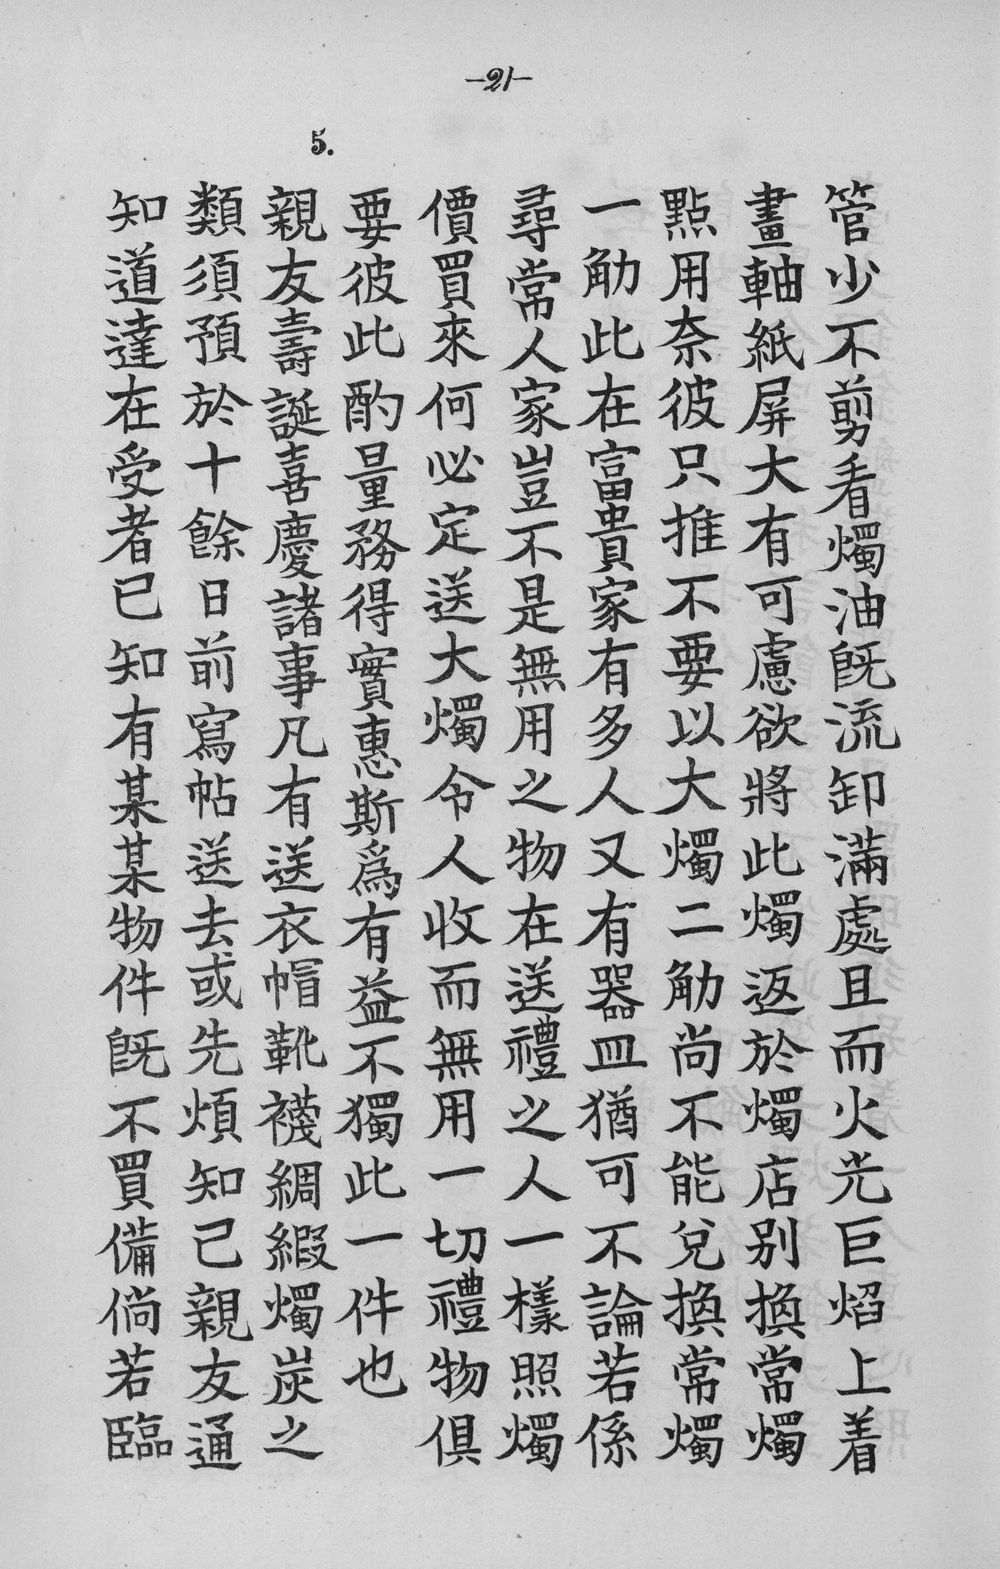 —21—
5.
管少不剪看燭油旣流卸滿處且而火光巨熖上着
畫軸紙屏大有可慮欲將此燭返於燭店別換常燭
點用奈彼只推不要以大燭二觔尚不能兌換常燭
一觔此在富貴家有多人又有器皿猶可不論若係
尋常人家豈不是無用之物在送禮之人一樣照燭
價買來何必定送大燭令人收而無用一切禮物俱
要彼此酌量務得實惠斯爲有益不獨此一件也
親友壽誕喜慶諸事凡有送衣帽靴襪綢緞燭炭之
類須預於十餘日前寫帖送去或先煩知己親友通
知道達在受者已知有某某物件旣不買備倘若臨